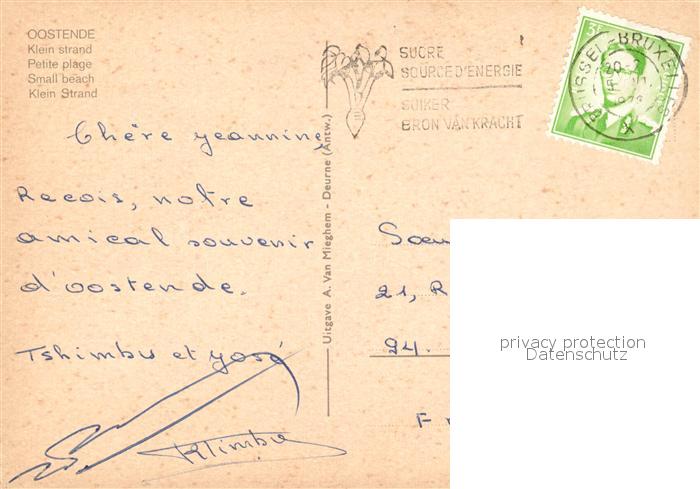 OOSTENDE
Klein strand
Petite plage
Small beach
Klein Strand
SUCRE
SOURCE D'ENERGIE
SUIKER
BRON VAN KRACHT
BRUSSEL - BRUXELLES
Chère yeannine,
Recois, notre
amical souvenir
d'oostende.
Tshimbu et yosé
Ktimbu
Uitgave A. Van Mieghem - Deurne (Antw.)
Sœu
21, R
94.
F
privacy protection
Datenschutz